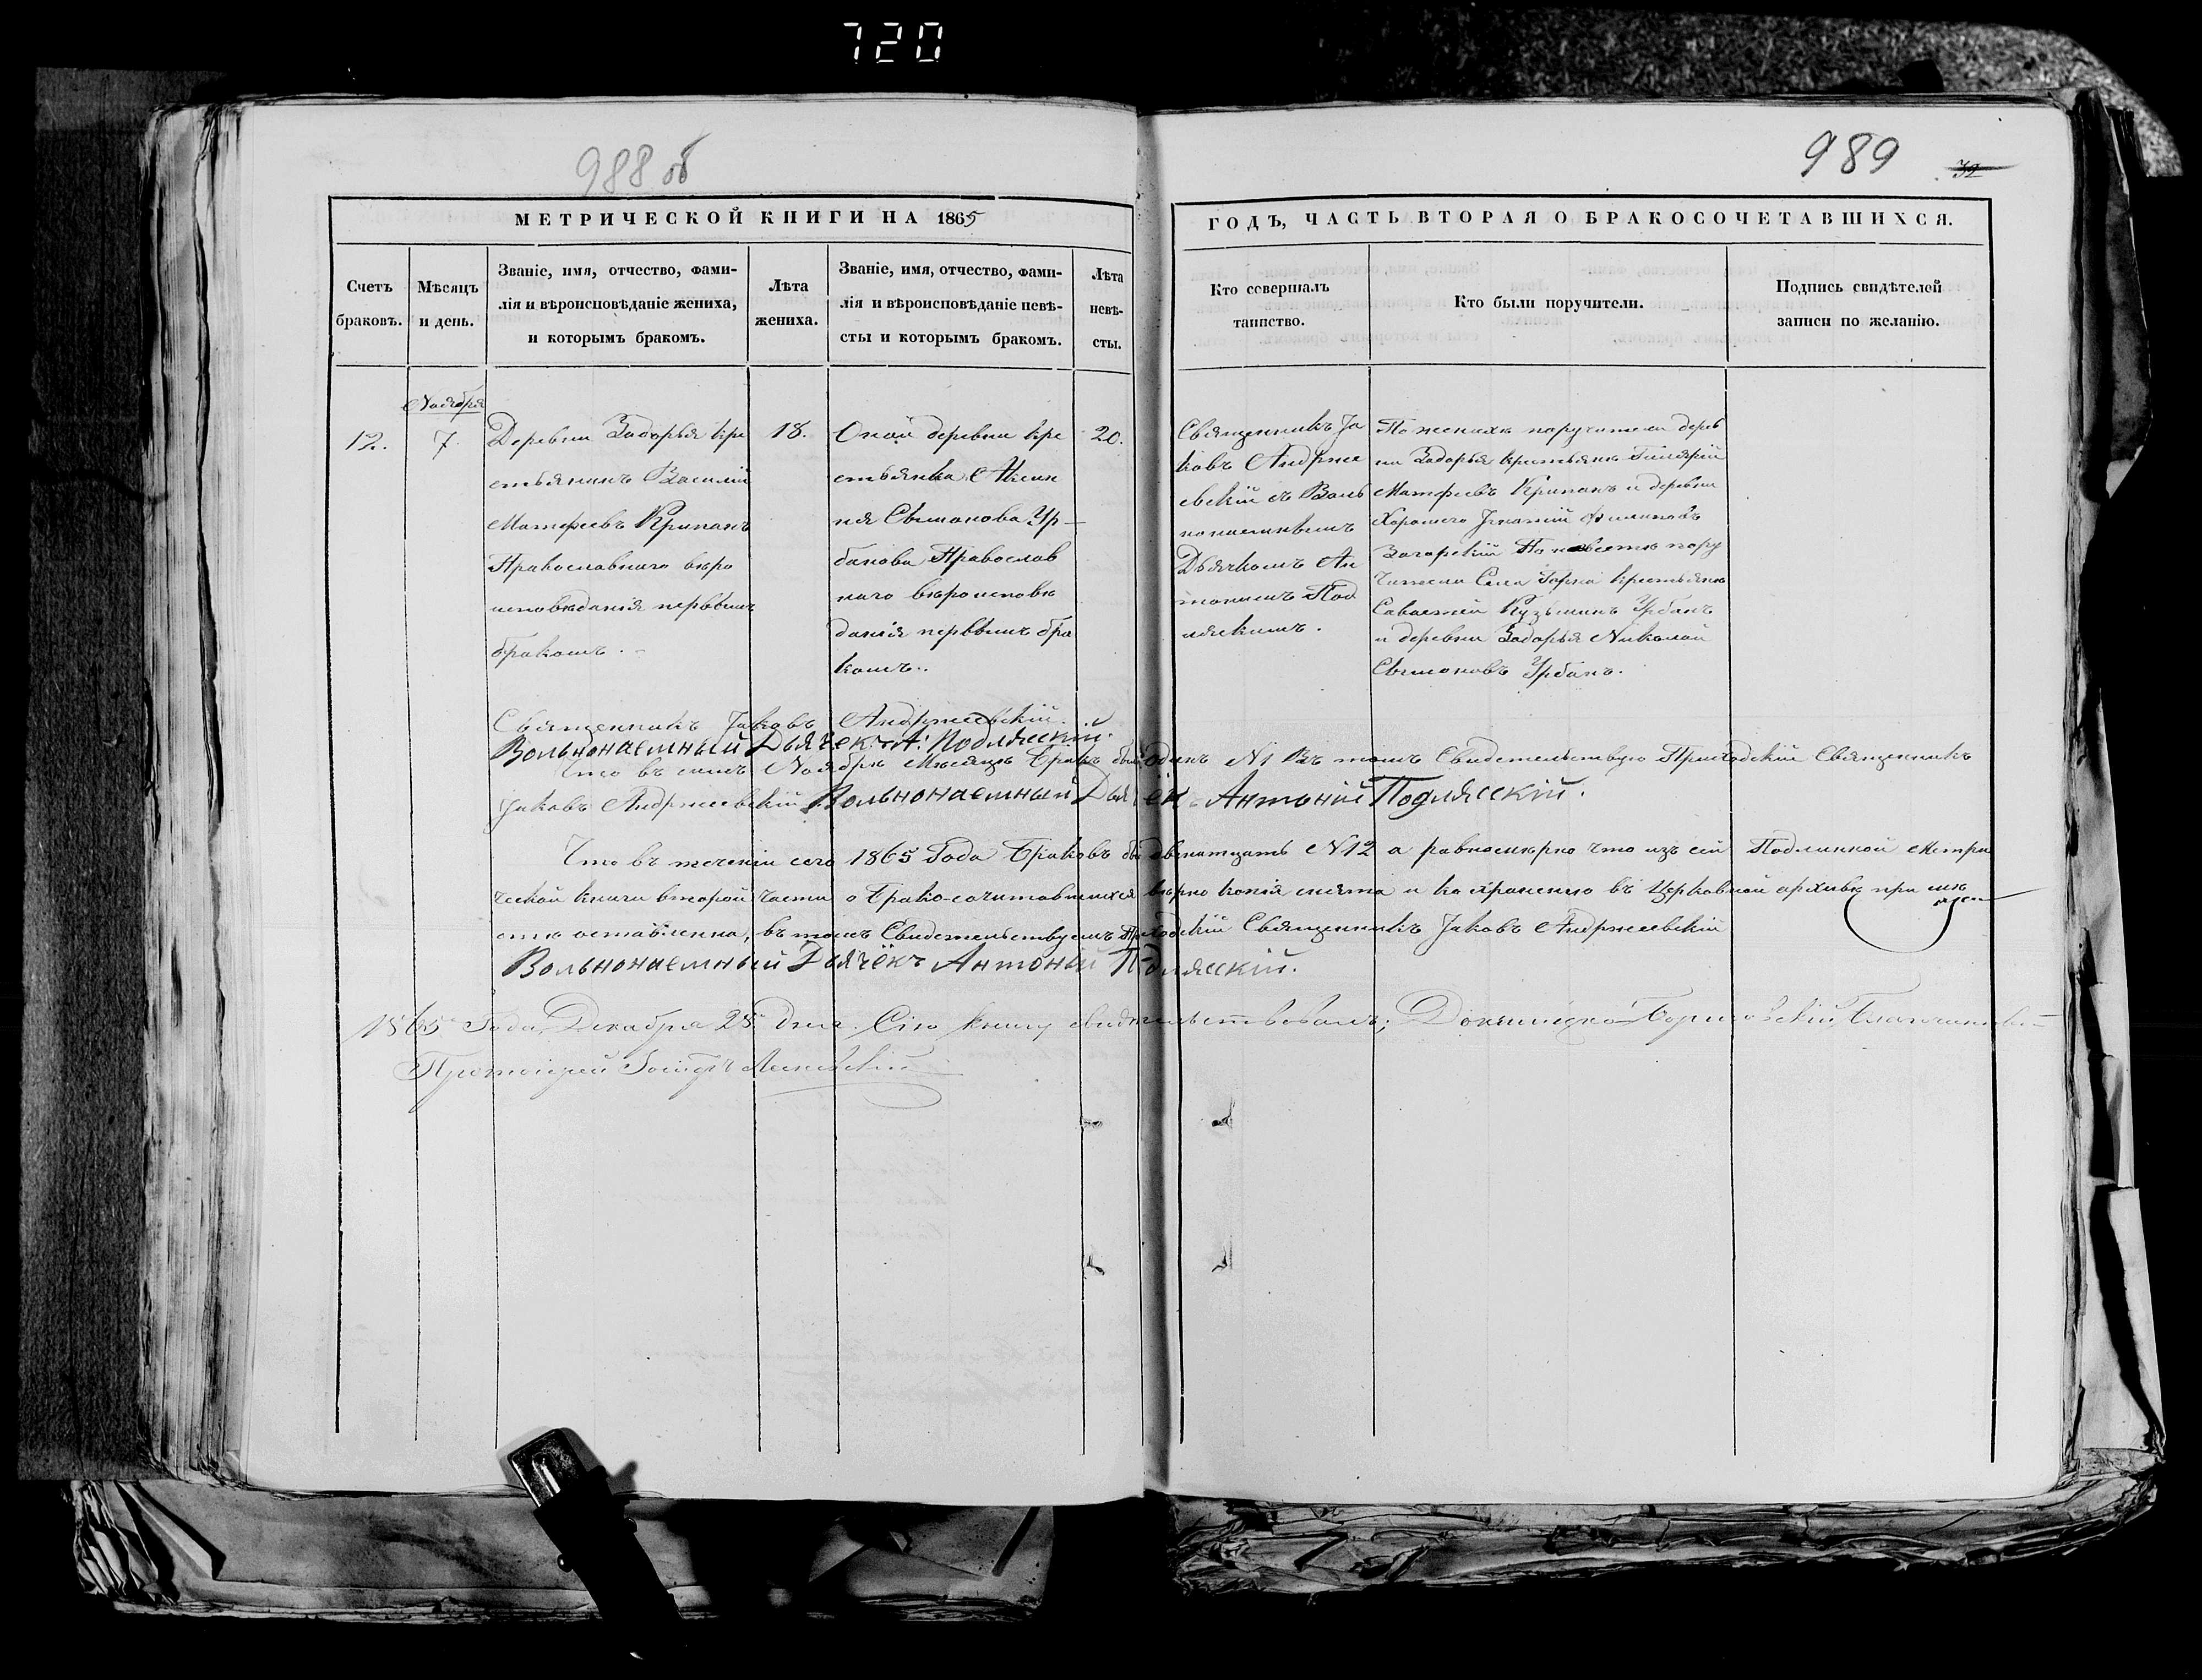 720
988 об
989
32
МЕТРИЧЕСКОЙ КНИГИ НА 1865
ГОДЪ, ЧАСТЬ ВТОРАЯ О БРАКОСОЧЕТАВШИХСЯ.
Счетъ
браковъ.
Мѣсяцъ
и день.
Званіе, имя, отчество, фами-
лія и вѣроисповѣданіе жениха,
и которымъ бракомъ.
Лѣта
жениха.
Званіе, имя, отчество, фами-
лія и вѣроисповѣданіе невѣ-
сты и которымъ бракомъ.
Лѣта
невѣ-
сты.
Кто совершалъ
таинство.
Кто были поручители.
Подпись свидѣтелей
записи по желанію.
12.
Ноября
7.
Деревни Задорья кре
стьянинъ Василій
Матфеевъ Крипанъ
Православнаго вѣро
исповѣданія первымъ
бракомъ.
18.
Оной деревни кре
стьянка Аксин
ія Сѵмонова Ур-
банова Православ
наго вѣроисповѣ
данія первымъ бра
комъ.
20.
Священникъ Іа
ковъ Андрже
евскій съ Воль
нонаемнымъ
Дьячкомъ Ан
тоніемъ Под
ляскимъ.
По женихѣ поручители дерев
ни Задорья крестьяне
Матфеевъ Крипанъ и деревни
Игнатій
По невестѣ пору
чители Села крестьянѣ
Саватей Кузьминъ Урбанъ
и деревни Задорья Николай
Сѵмоновъ Урбанъ.
Священникъ Іаковъ Андржеевскій.
Вольнонаемный Дьячекъ А: Подляскій.
Что въ семъ Ноябрѣ Мѣсяцѣ Бракъ былъ одинъ N1 Въ томъ Свидетельствую Приходскій Священникъ
Іаковъ Андржеевскій Вольнонаемный Дьячёкъ Антоній Подлясскій.
Что въ теченіи сего 1865 Года Браковъ двенатцать N12 а равномѣрно что изъ сей Подлинной Метри
ческой книги второй части о Брако-сочитавшихся вѣрно копія снята и ко храненію въ Церковной архивѣ при мѣ
стѣ оставленна, въ томъ Свидетельствуемъ Приходскій Священникъ Іаковъ Андржеевскій
Вольнонаемный Дьячёкъ Антоній Подлясскій.
1865 Года, Декабря 25 дня. Сію книгу свидѣтельствовалъ; Докшицко-Борисовскій
Протоіерей Іосифъ